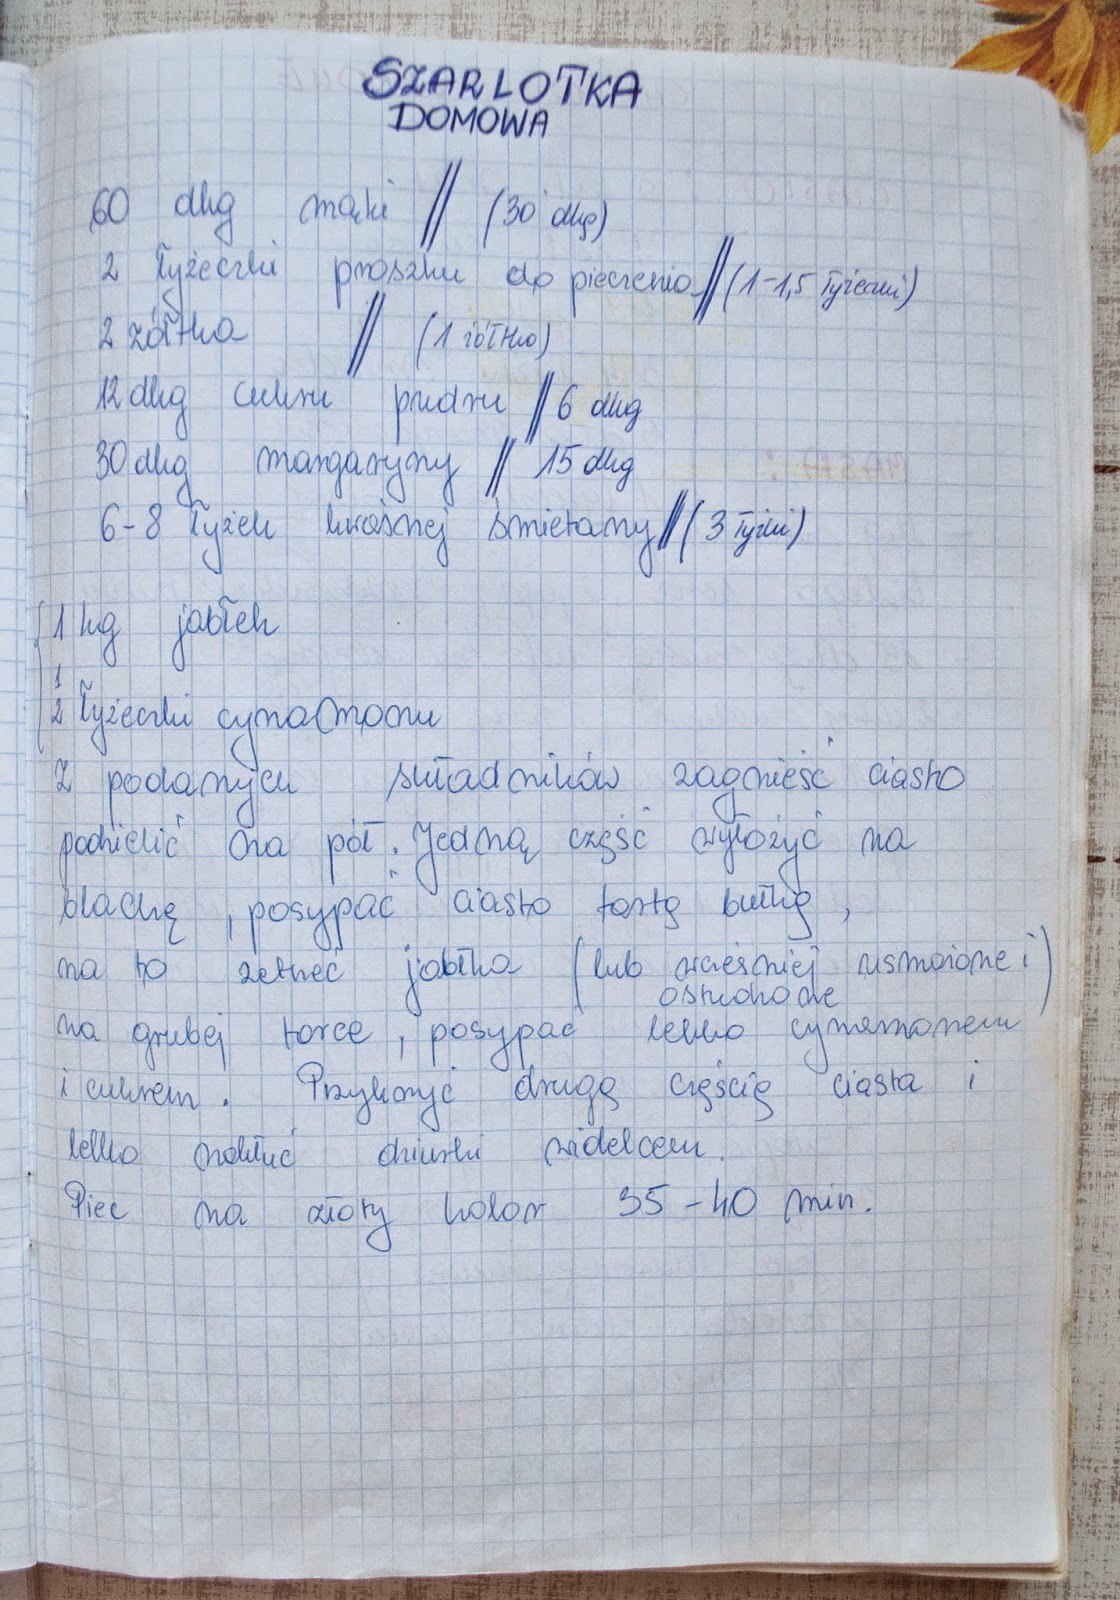 SZARLOTKA
DOMOWA
60 dkg mąki // (30 dkg)
2 łyżeczki proszku do pieczenia // (1-1,5 łyżeczki)
2 żółtka // (1 żółtko)
12 dkg cukru pudru // 6 dkg
30 dkg margaryny // 15 dkg
6-8 łyżek kwaśnej śmietany // (3 łyżki)
1 kg jabłek
1/2 łyżeczki cynamonu
Z podanych składników zagnieść ciasto
podzielić na pół. Jedną część wyłożyć na
blachę, posypać ciasto tartą bułką,
na to zetrzeć jabłka (lub wcześniej usmażone i
ostudzone)
na grubej tarce, posypać lekko cynamonem
i cukrem. Przykryć drugą częścią ciasta i
lekko nakłuć dziurki widelcem.
Piec na złoty kolor 35-40 min.